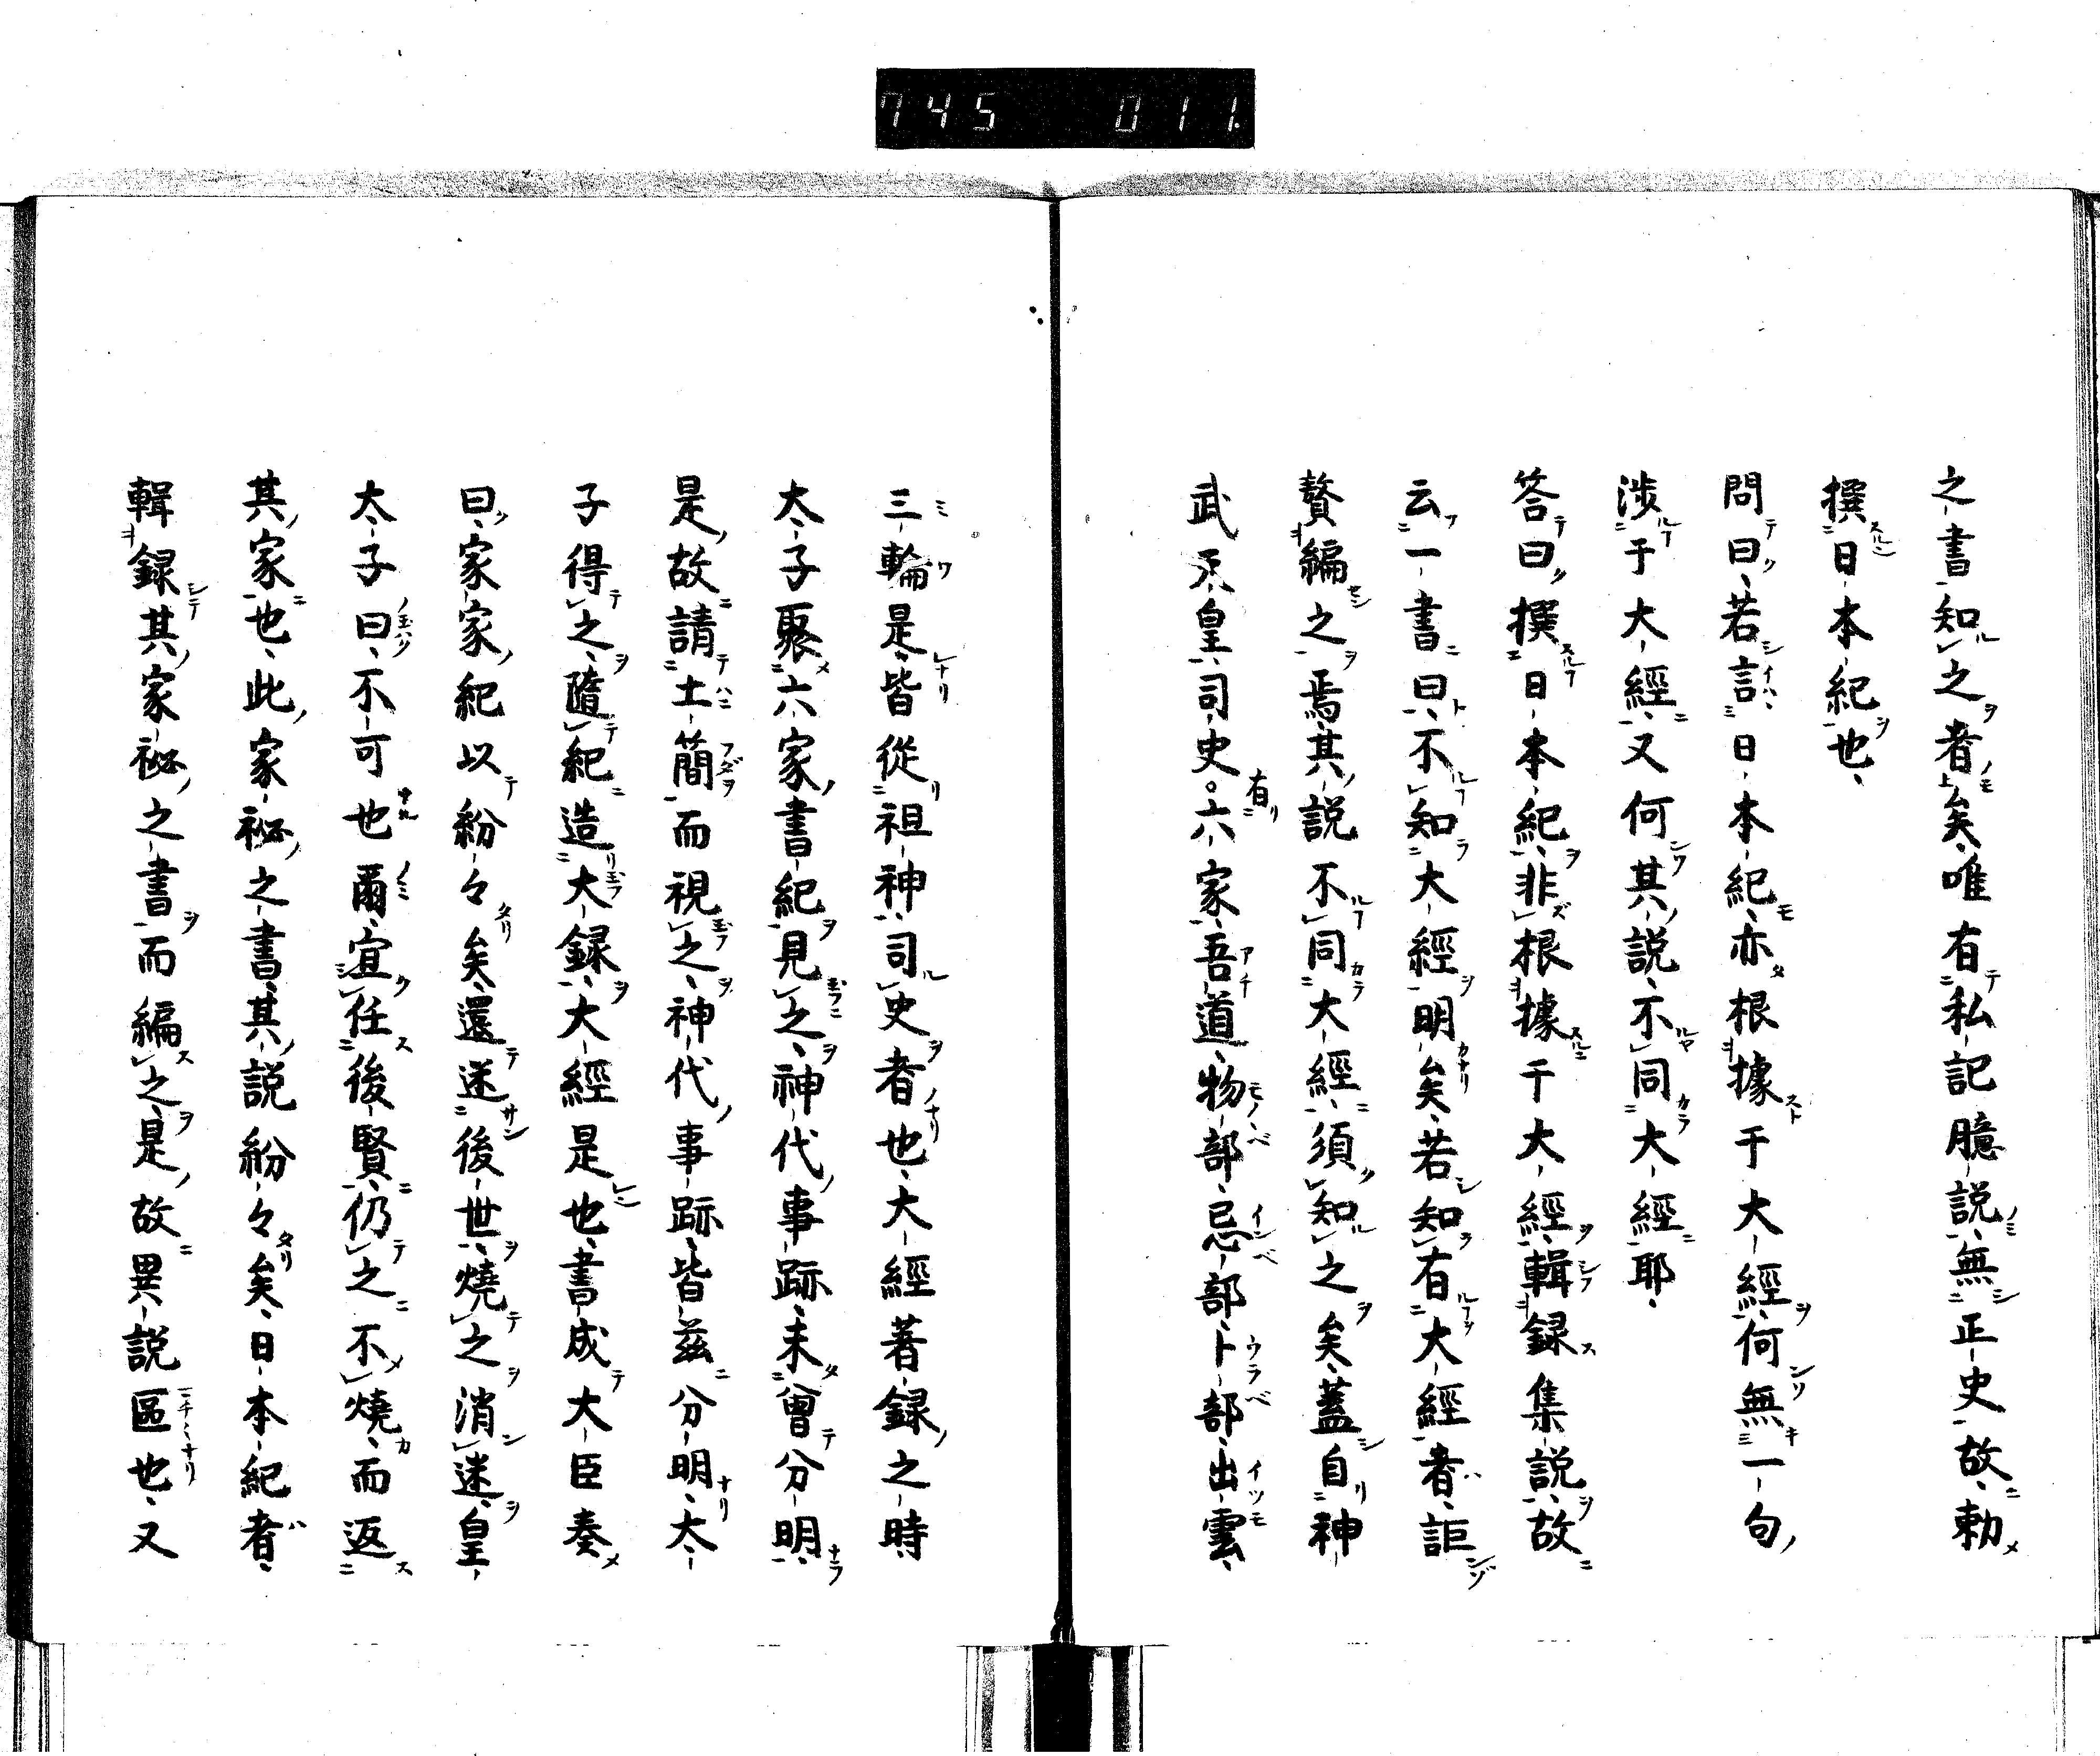 745 011.
之書知之者矣、唯有私記臆説、無正史、故、勅
撰日本紀也、
問曰、若言日本紀、亦根據于大經、何無一句
渉于大經、又何其説、不同大經耶、
答曰、撰日本紀、非根據于大經、輯録集説、故
云一書曰、不知大經明矣、若知有大經者、詎
贅編之焉、其説不同大經、須知之矣、蓋自神
武天皇、司史。六家、吾道、物部、忌部、卜部、出雲、
三輪是、皆從祖神、司史者也、大經著録之時
太子聚六家書紀見之、神代事跡、未曾分明、
是故請土簡而視之、神代事跡、皆茲分明、太
子得之、隨紀造大録、大經是也、書成大臣奏
曰、家家紀以紛々矣、還迷後世、燒之消迷、皇
太子曰、不可也爾、宜任後賢、仍之不燒、而返
其家也、此家祕之書、其説紛々矣、日本紀者、
輯録其家祕之書而編之、是故異説區也、又